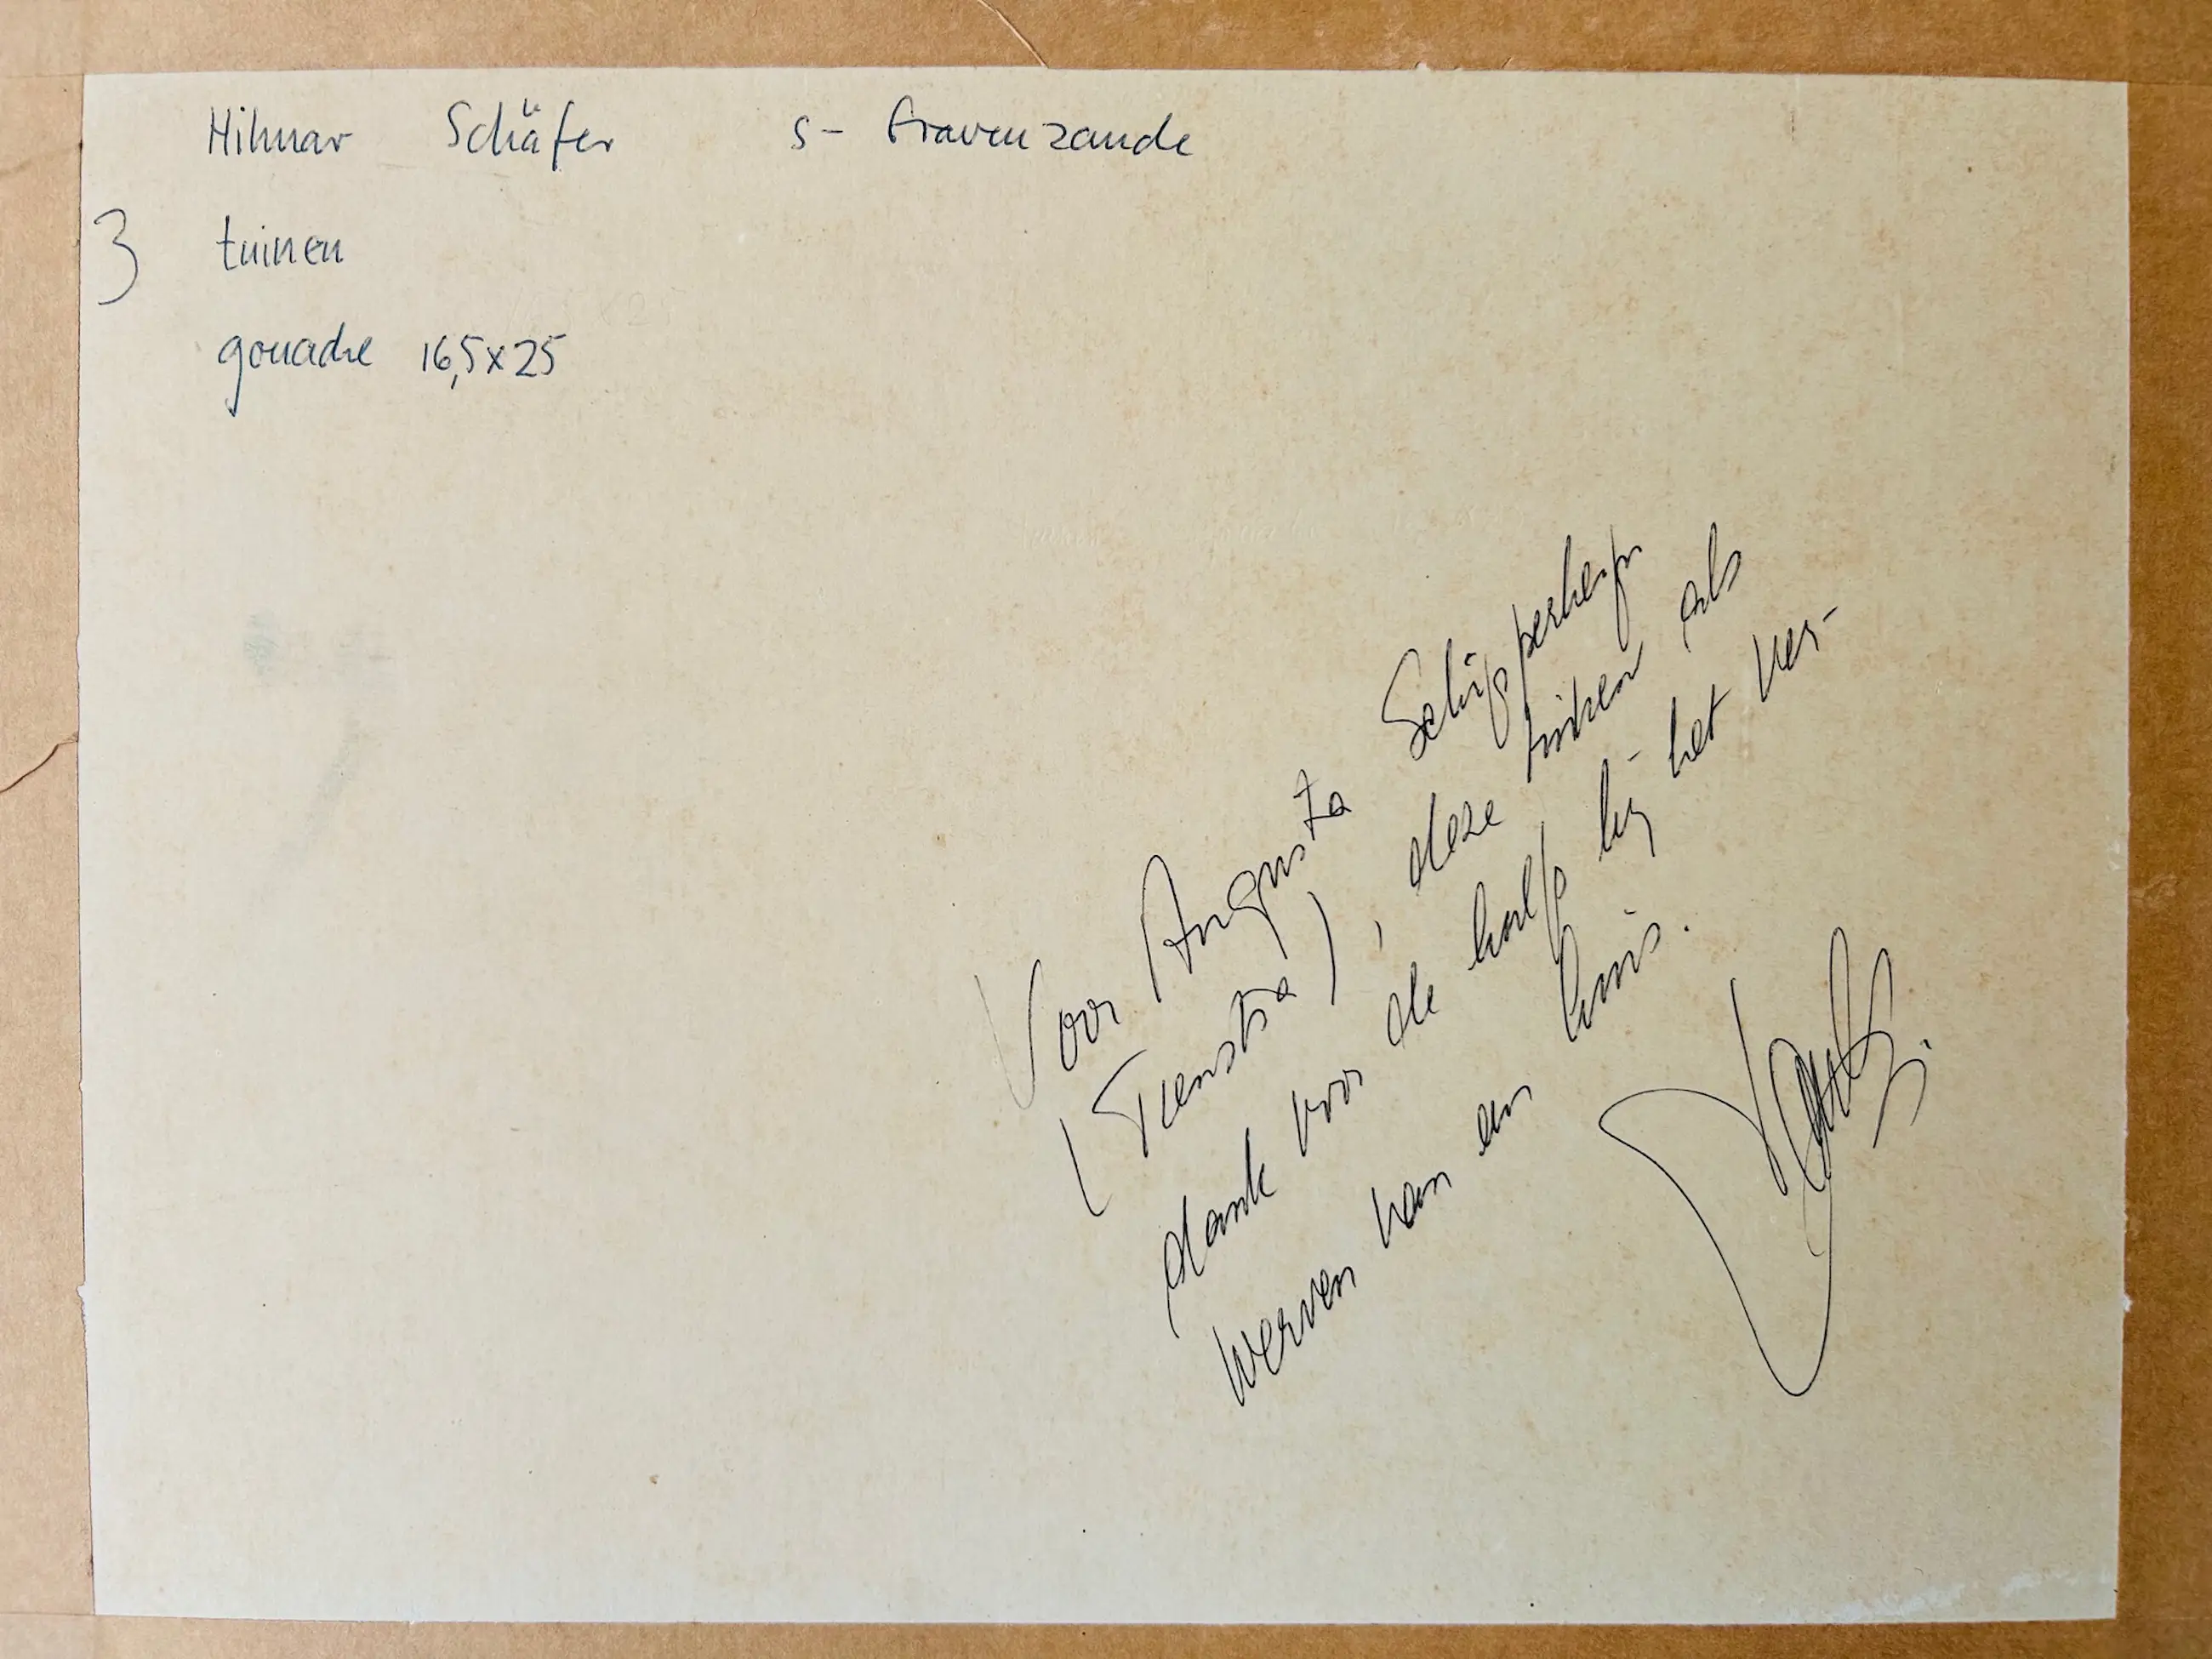 Hilmar Schäfer s-Gravenzande
3 tuinen
gouache 16,5x25
Voor Augusta Schipperheijn
(Tienstra), deze tuinen als
dank voor de hulp bij het ver-
werven van een huis.